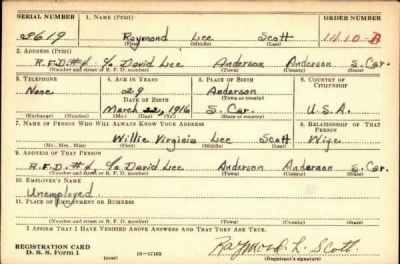 SERIAL NUMBER 1. NAME (Print) ORDER NUMBER
2619 Raymond Lee Scott 1410-A
(First) (Middle) (Last)
2. ADDRESS (Print)
R.F.D.#1 c/o David Lee Anderson Anderson S. Car.
(Number and street or R. F. D. number) (Town) (County) (State)
3. TELEPHONE 4. AGE IN YEARS 5. PLACE OF BIRTH 6. COUNTRY OF CITIZENSHIP
None Anderson
DATE OF BIRTH (Town or county)
March 22, 1916 S. Car. U.S.A.
(Exchange) (Number) (Mo.) (Day) (Yr.) (State or country)
7. NAME OF PERSON WHO WILL ALWAYS KNOW YOUR ADDRESS 8. RELATIONSHIP OF THAT PERSON
Willie Virginia Lee Scott Wife
(Mr., Mrs., Miss) (First) (Middle) (Last)
9. ADDRESS OF THAT PERSON
R.F.D.#1 c/o David Lee Anderson Anderson S. Car.
(Number and street or R. F. D. number) (Town) (County) (State)
10. EMPLOYER'S NAME
Unemployed
11. PLACE OF EMPLOYMENT OR BUSINESS
(Number and street or R. F. D. number) (Town) (County) (State)
I AFFIRM THAT I HAVE VERIFIED ABOVE ANSWERS AND THAT THEY ARE TRUE.
REGISTRATION CARD
D. S. S. Form 1 (over) 16-17105 Raymond L. Scott
(Registrant's signature)